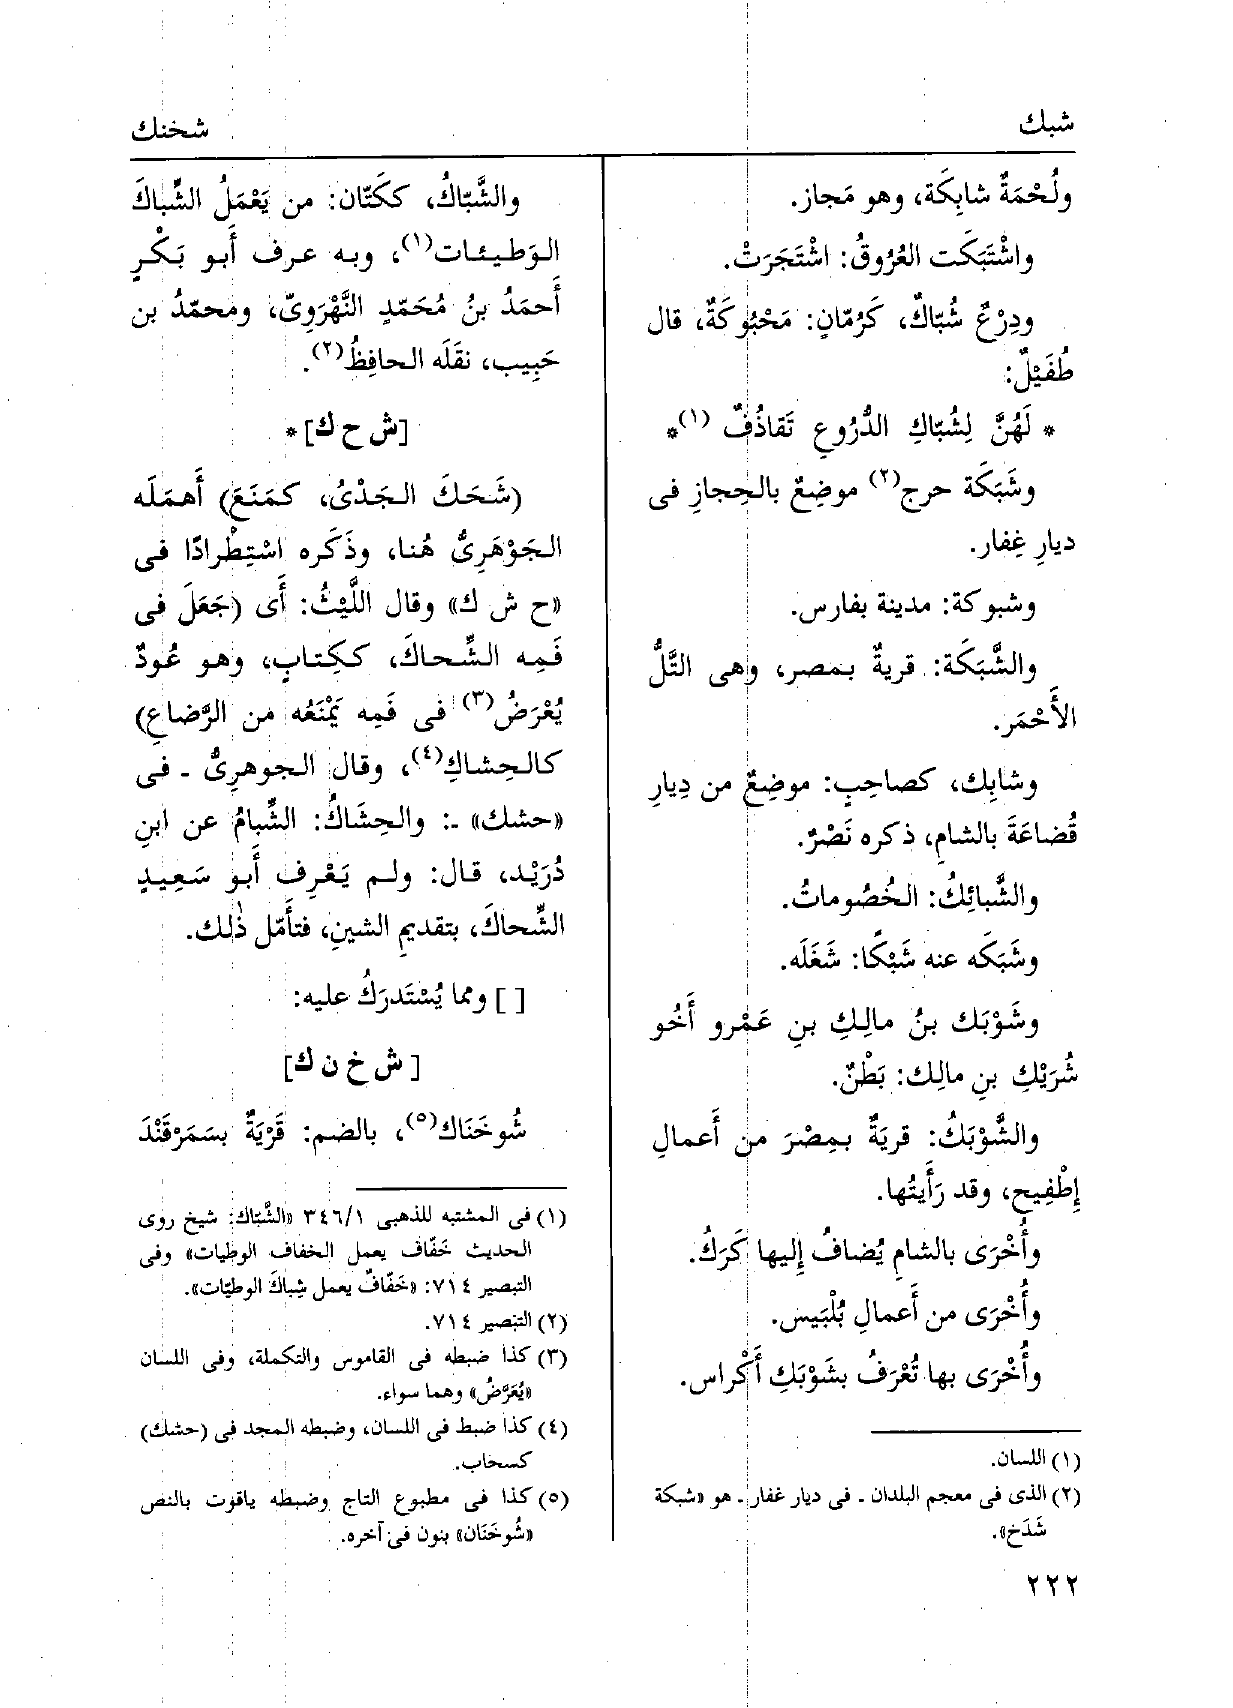 شبك
شخنك
ولُحْمَةٌ شابِكَة، وهو مَجاز.
واشْتَبَكَت العُرُوقُ: اشْتَجَرَتْ.
ودِرْعٌ شُبّاكٌ، كَرُمّانٍ: مَحْبُوكَةٌ، قال
طُفَيْلٌ:
* لَهُنَّ لِشُبّاكِ الدُّرُوعِ تَقاذُفٌ (١)*
وشَبَكَة حرج(٢) موضِعٌ بالحِجازِ فى
ديارِ غِفار.
وشبوكة: مدينة بفارس.
والشَّبَكَة: قريةٌ بمصر، وهى التَّلُّ
الأَحْمَر.
وشابِك، كصاحِبٍ: موضِعٌ من دِيارِ
قُضاعَةَ بالشامِ، ذكره نَصْرٌ.
والشَّبائِكُ: الخُصُوماتُ.
وشَبَكَه عنه شَبْكًا: شَغَلَه.
وشَوْبَك بنُ مالِكِ بنِ عَمْرو أَخُو
شُرَيْكِ بنِ مالِك: بَطْنٌ.
والشَّوْبَكُ: قريَةٌ بمِصْرَ من أَعمالِ
إِطْفِيح، وقد رَأَيتُها.
وأُخْرَى بالشامِ يُضافُ إِليها كَرَكُ.
وأُخْرَى من أَعمالِ بُلْبَيس.
وأُخْرَى بها تُعْرَفُ بشَوْبَكِ أَكْراس.
(١) اللسان.
(٢) الذى فى معجم البلدان ـ فى ديار غفار ـ هو «شبكة
شَدَخ».
٢٢٢
والشَّبّاكُ، ككَتّان: من يَعْمَلُ الشِّباكَ
الوَطيئات(١)، وبه عرف أَبو بَكْرٍ
أَحمَدُ بنُ مُحَمّدٍ النَّهْرَوِىّ، ومحمّدُ بن
حَبِيب، نقَلَه الحافِظُ(٢).
[ش ح ك]*
(شَحَكَ الجَدْىُ، كمَنَعَ) أَهمَلَه
الجَوْهَرِىُّ هُنا، وذَكَره اسْتِطْرادًا فى
«ح ش ك» وقال اللَّيْثُ: أَى (جَعَلَ فى
فَمِه الشِّحاكَ، ككِتابٍ، وهو عُودٌ
يُعْرَضُ(٣) فى فَمِه يَمْنَعُه من الرَّضاعِ)
كالحِشاكِ(٤)، وقال الجوهرِىُّ ـ فى
«حشك» ـ: والحِشَاكُ: الشِّبامُ عن ابنِ
دُرَيْد، قال: ولم يَعْرِف أَبو سَعِيدٍ
الشِّحاكَ، بتقديمِ الشينِ، فتأَمّل ذٰلك.
[ ] ومما يُسْتَدرَكُ عليه:
[ش خ ن ك]
شُوخَنَاك(٥)، بالضم: قَرْيَةٌ بسَمَرْقَنْدَ
(١) فى المشتبه للذهبى ٣٤٦/١ «الشَّبّاك: شيخ روى
الحديث خَفّاف يعمل الخفاف الوطيات» وفى
التبصير ٧١٤: «خَفّافٌ يعمل شِباكَ الوطيّات».
(٢) التبصير ٧١٤.
(٣) كذا ضبطه فى القاموس والتكملة، وفى اللسان
«يُعَرَّضُ» وهما سواء.
(٤) كذا ضبط فى اللسان، وضبطه المجد فى (حشك)
كسحاب.
(٥) كذا فى مطبوع التاج وضبطه ياقوت بالنص
«شُوخَنَان» بنون فى آخره.